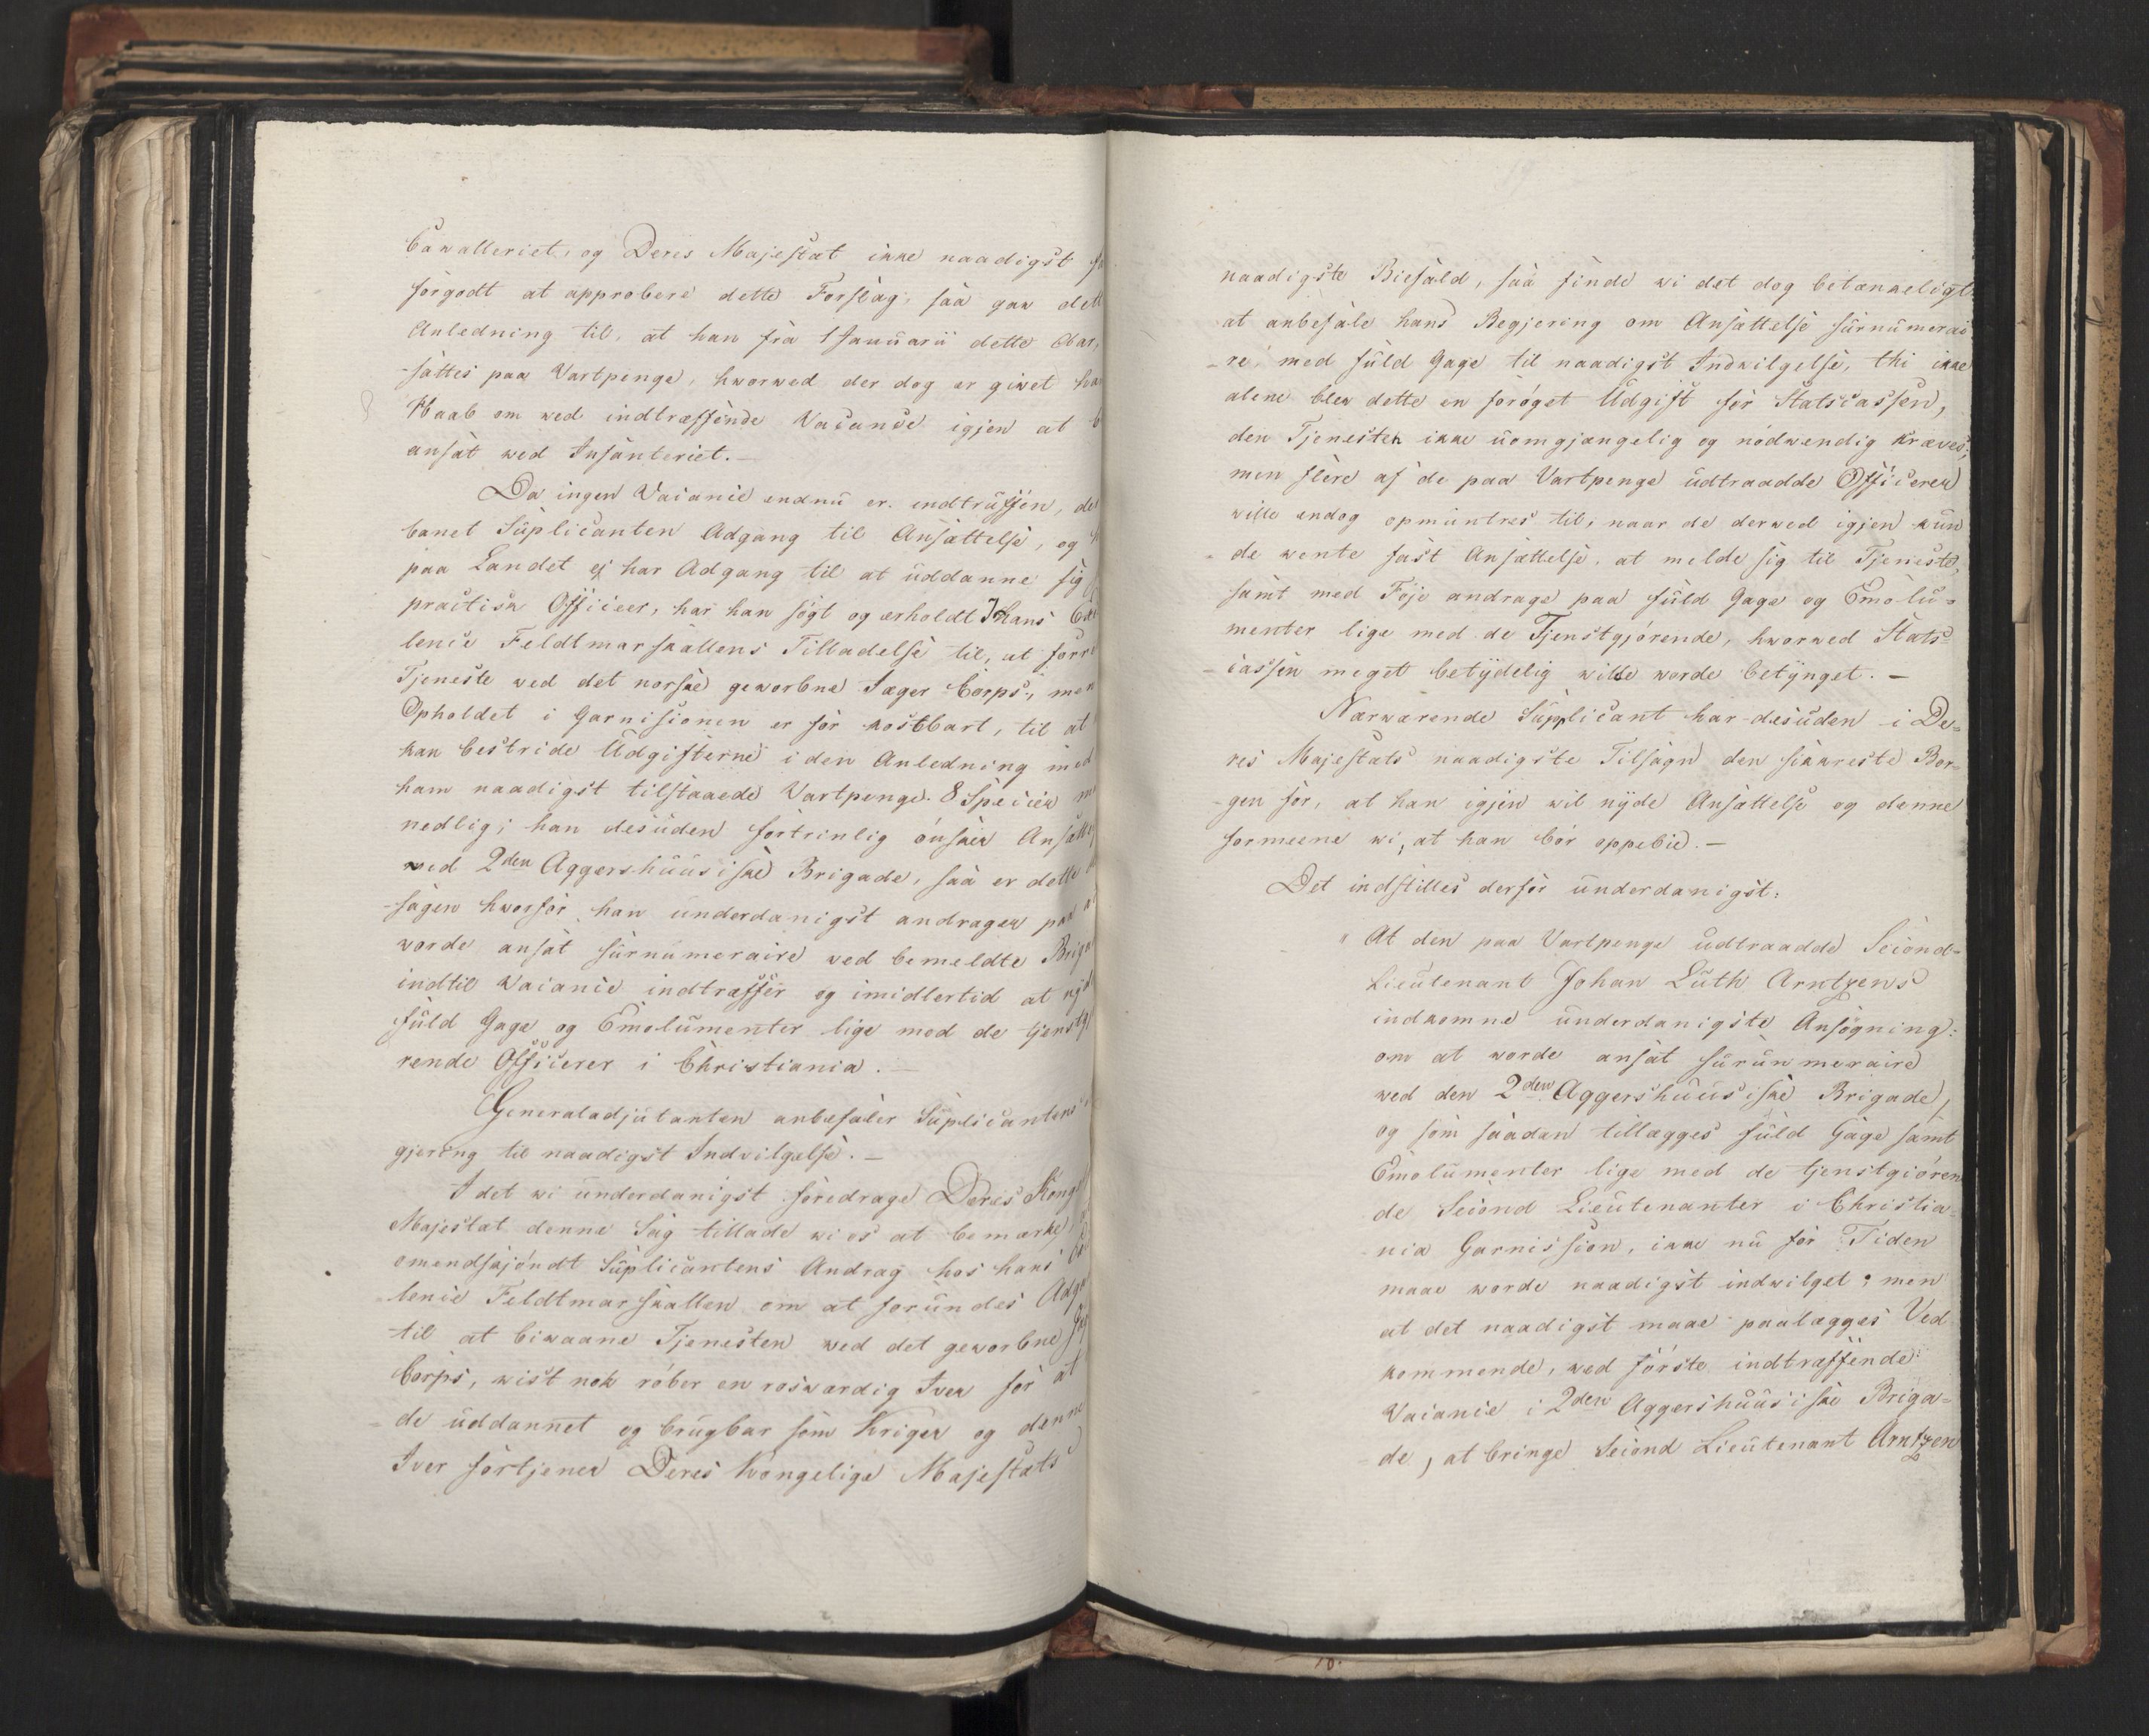 Cavalleriet, og Deres Majestæt ikke naadigst
forgodt at approbere dette Forslag, saa gav
Anledning til, at han fra 1 Januarii dette Aar,
sattes paa Vartpenge, hvorved der dog er givet
Haab om ved indtræffende Vacance igjen at
ansat ved Infanteriet.
Da ingen Vacance endnu er indtruffen, der
banet Suplicanten Adgang til Ansættelse, og
paa Landet ej har Adgang til at uddanne sig
practisk Officeer, har han søgt og erholdt Hans
lence Feldtmarskallens Tilladelse til, at
Tjeneste ved det norske geworbne Jæger Corps; men
Opholdet i Garnisionen er for kostbart, til at
kan bestride Udgifterne i den Anledning med
ham naadigst tilstaaede Vartpenge 8 Species
nedlig; han desuden fortrinlig ønsker
ved 2den Aggershuusiske Brigade, saa er dette
sagen hvorfor han underdanigst andrager paa at
vorde ansat surnumeraire ved bemeldte
indtil Vacance indtræffer og imidlertid at
fuld Gage og Emolumenter lige med de
rende Officerer i Christiania. —
Generaladjutanten anbefaler Suplicantens
gjering til naadigst Indvilgelse. —
Idet vi underdanigst foredrage Deres
Majestæt denne Sag tillade vi os at bemærke,
omendskjøndt Suplicantens Andrag hos hans
lence Feldtmarskallen om at forundes
til at bivaane Tjenesten ved det geworbne
Corps, vist nok røber en rosværdig Iver for at
de uddannet og brugbar som Kriger og denne
Iver fortjener Deres Kongelige Majestæts
naadigste Biefald, saa finde vi det dog betænkeligt
at anbefale hans Begjering om Ansættelse surnumerai
-re, med fuld Gage til naadigst Indvilgelse, thi ikke
alene blev dette en forøget Udgift for Statscassen,
den Tjenesten ikke uomgjængelig og nødvendig kræves;
men flere af de paa Vartpenge udtraadde Officerer
ville endog opmuntres til, naar de derved igjen kun
-de vente fast Ansættelse, at melde sig til Tjeneste,
samt med Føje andrage paa fuld Gage og Emolu-
menter lige med de Tjenstgjørende, hvorved Stats-
-cassen meget betydelig ville vorde betynget. —
Nærværende Supplicant har desuden i De-
res Majestæts naadigste Tilsagn den sikkreste Bor-
-gen for, at han igjen vil nyde Ansættelse og denne
formeene vi, at han bør oppebie. —
Det indstilles derfor underdanigst:
" At den paa Vartpenge udtraadde Second-
Lieutenant Johan Luth Arntzens
indkomne underdanigste Ansøgning:
om at vorde ansat surunmeraire
ved den 2den Aggershuusiske Brigade,
og som saadan tillægges fuld Gage samt
Emolumenter lige med de tjenstgiøren
de Second Lieutenanter i Christia-
nia Garnission, ikke nu for Tiden
maae vorde naadigst indvilget; men
at det naadigst maae paalægges Ved
kommende, ved første indtræffende
Vacance i 2den Aggershuusiske Briga-
de, at bringe Second Lieutenant Arntzen